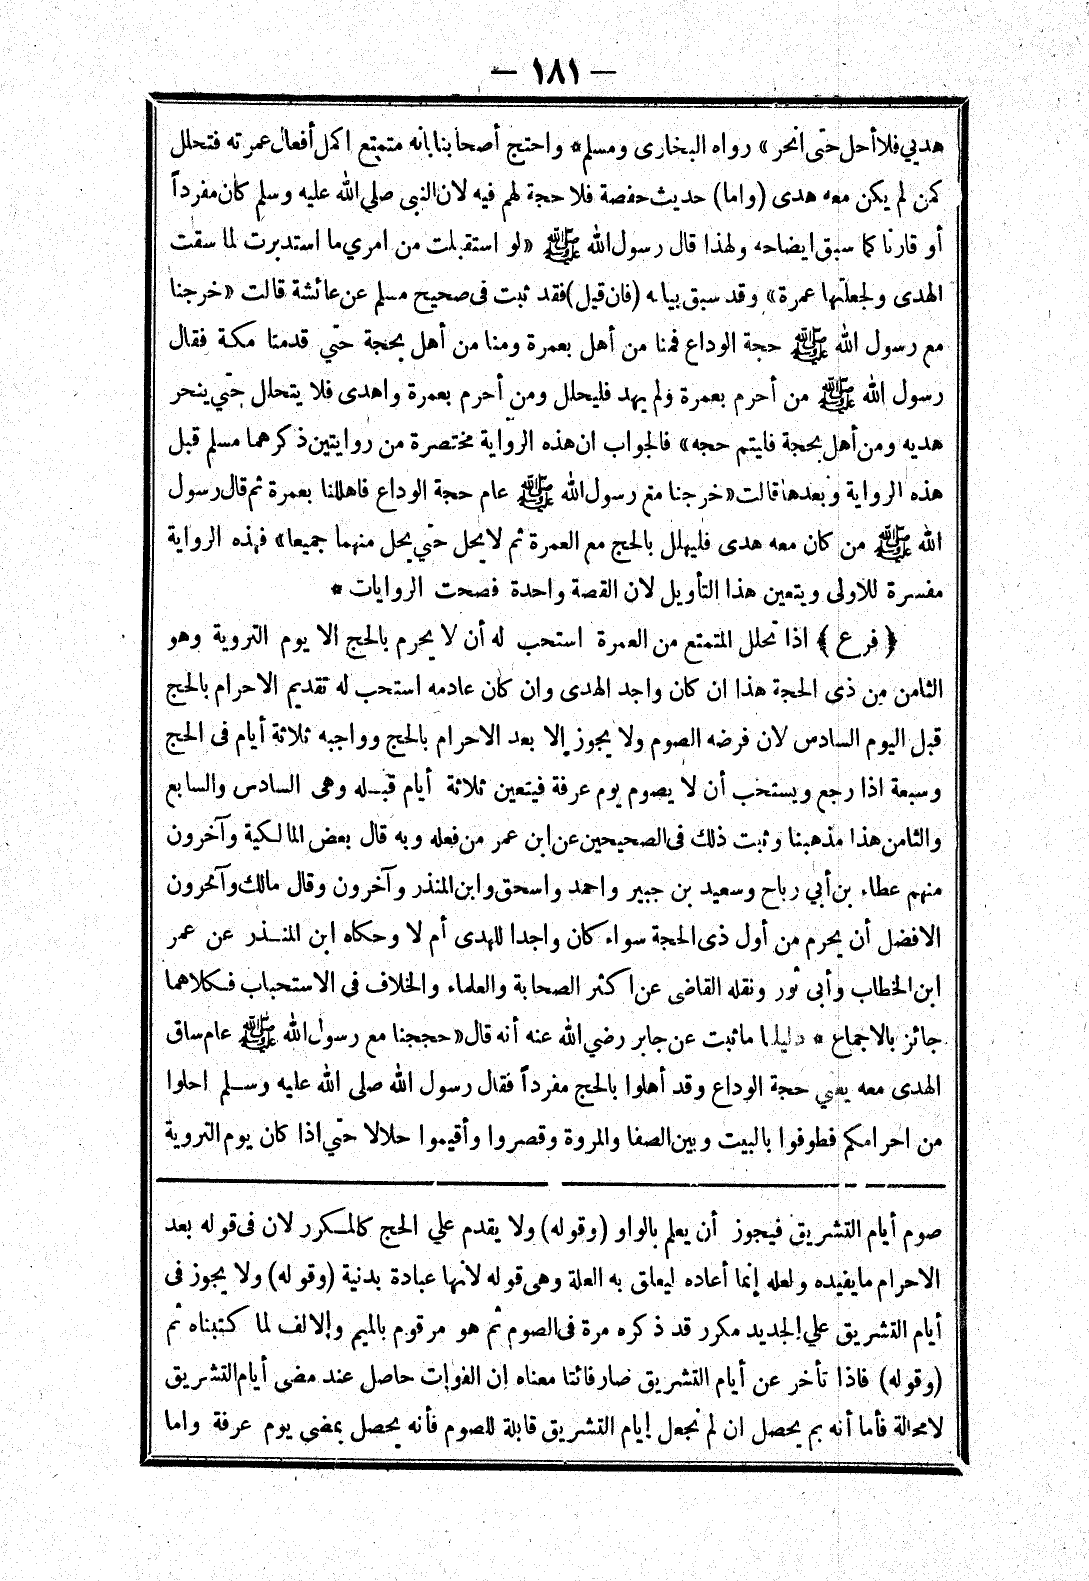 — ١٨١ —
هديي فلا أحل حتى انحر » رواه البخارى ومسلم * واحتج أصحابنا بانه متمتع اكمل أفعال عمرته فتحلل
كمن لم يكن معه هدى (واما) حديث حفصة فلا حجة لهم فيه لان النبى صلي الله عليه وسلم كان مفرداً
أو قارنا كما سبق ايضاحه ولهذا قال رسول الله ﷺ « لو استقبلت من امري ما استدبرت لما سقت
الهدى ولجعلتها عمرة » وقد سبق بيانه (فان قيل) فقد ثبت فى صحيح مسلم عن عائشة قالت « خرجنا
مع رسول الله ﷺ حجة الوداع فمنا من أهل بعمرة ومنا من أهل بحجة حتي قدمنا مكة فقال
رسول الله ﷺ من أحرم بعمرة ولم يهد فليحلل ومن أحرم بعمرة واهدى فلا يتحلل حتي ينحر
هديه ومن أهل بحجة فليتم حجه » فالجواب ان هذه الرواية مختصرة من روايتين ذكرهما مسلم قبل
هذه الرواية وبعدها قالت « خرجنا مع رسول الله ﷺ عام حجة الوداع فاهللنا بعمرة ثم قال رسول
الله ﷺ من كان معه هدى فليهلل بالحج مع العمرة ثم لا يحل حتي يحل منهما جميعا » فهذه الرواية
مفسرة للاولى ويتعين هذا التأويل لان القصة واحدة فصحت الروايات *
﴿ فرع ﴾ اذا تحلل المتمتع من العمرة استحب له أن لا يحرم بالحج الا يوم التروية وهو
الثامن من ذى الحجة هذا ان كان واجد الهدى وان كان عادمه استحب له تقديم الاحرام بالحج
قبل اليوم السادس لان فرضه الصوم ولا يجوز إلا بعد الاحرام بالحج وواجبه ثلاثة أيام فى الحج
وسبعة اذا رجع ويستحب أن لا يصوم يوم عرفة فيتعين ثلاثة أيام قبـله وهى السادس والسابع
والثامن هذا مذهبنا وثبت ذلك فى الصحيحين عن ابن عمر من فعله وبه قال بعض المالكية وآخرون
منهم عطاء بن أبي رباح وسعيد بن جبير واحمد واسحق وابن المنذر وآخرون وقال مالك وآخرون
الافضل أن يحرم من أول ذى الحجة سواء كان واجدا للهدى أم لا وحكاه ابن المنـذر عن عمر
ابن الخطاب وأبى ثور ونقله القاضى عن اكثر الصحابة والعلماء والخلاف فى الاستحباب فـكلاهما
جائز بالاجماع * دليلنا ما ثبت عن جابر رضي الله عنه أنه قال « حججنا مع رسول الله ﷺ عام ساق
الهدى معه يعني حجة الوداع وقد أهلوا بالحج مفرداً فقال رسول الله صلى الله عليه وسـلم احلوا
من احرامكم فطوفوا بالبيت وبين الصفا والمروة وقصروا وأقيموا حلالا حتي اذا كان يوم التروية
صوم أيام التشريق فيجوز أن يعلم بالواو (وقوله) ولا يقدم علي الحج كالمـكرر لان فى قوله بعد
الاحرام ما يفيده ولعله إنما أعاده ليعلق به العلة وهى قوله لانها عبادة بدنية (وقوله) ولا يجوز فى
أيام التشريق علي الجديد مكرر قد ذكره مرة فى الصوم ثم هو مرقوم بالميم والالف لما كتبناه ثم
(وقوله) فاذا تأخر عن أيام التشريق صار فائتا معناه إن الفوات حاصل عند مضى أيام التشريق
لا محالة فأما أنه بم يحصل ان لم نجعل إيام التشريق قابلة للصوم فأنه يحصل بمضى يوم عرفة واما